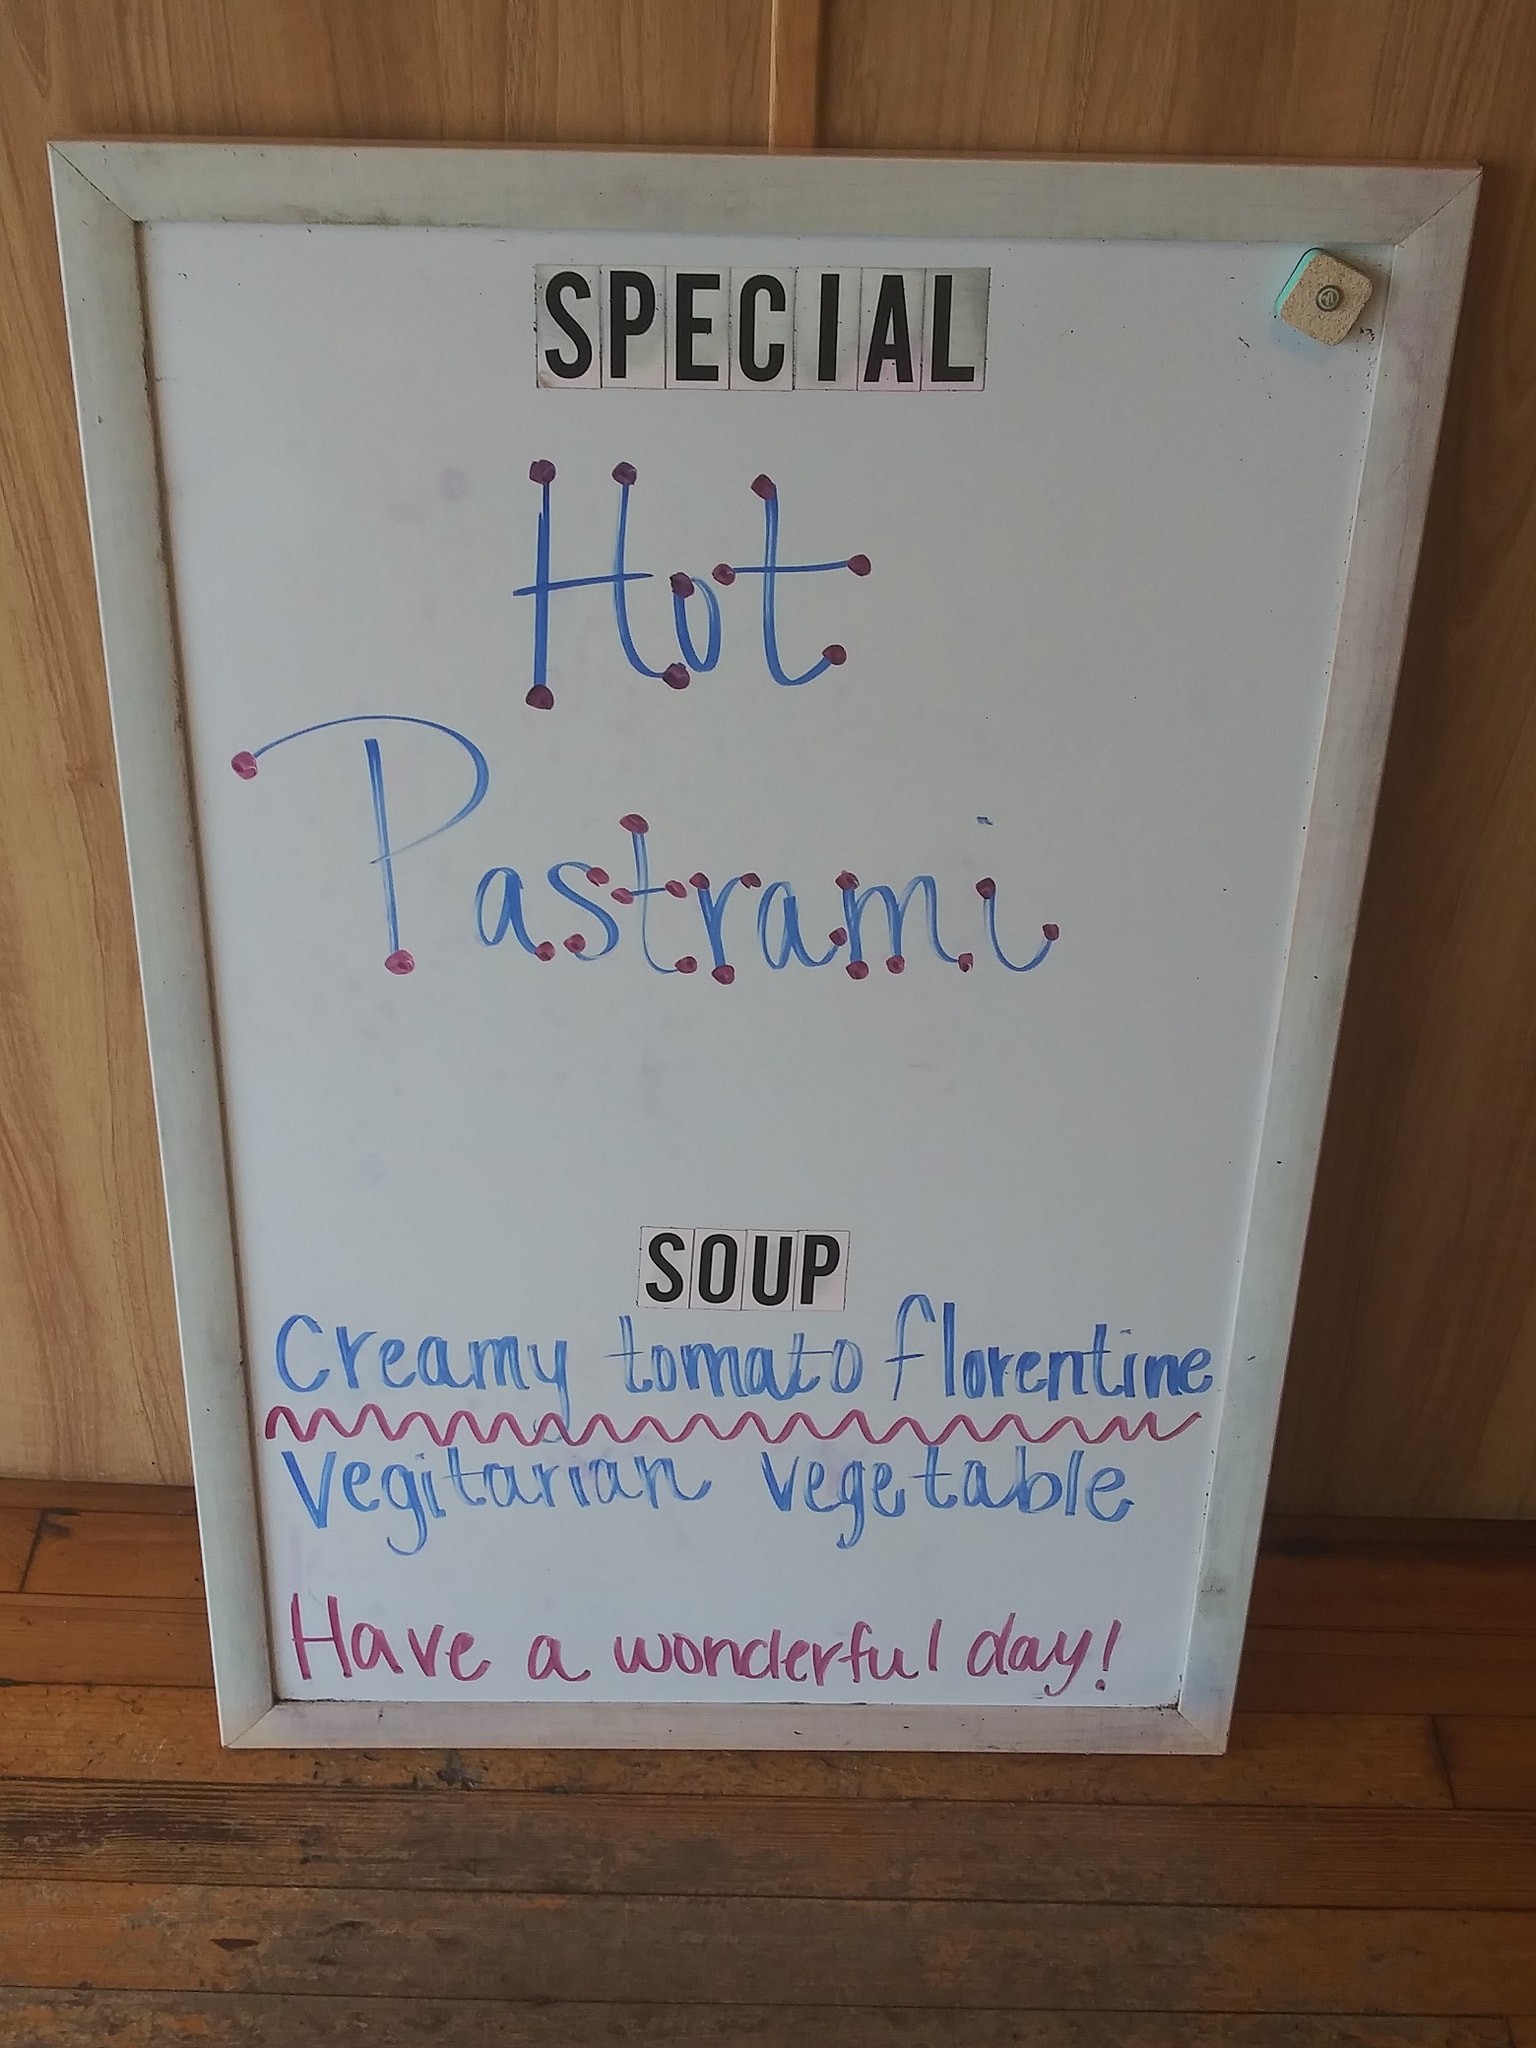 SPECIAL
Hot
Pastrami
SOUP
Creamy tomato florentine
Vegitarian vegetable
Have a wonderful day!